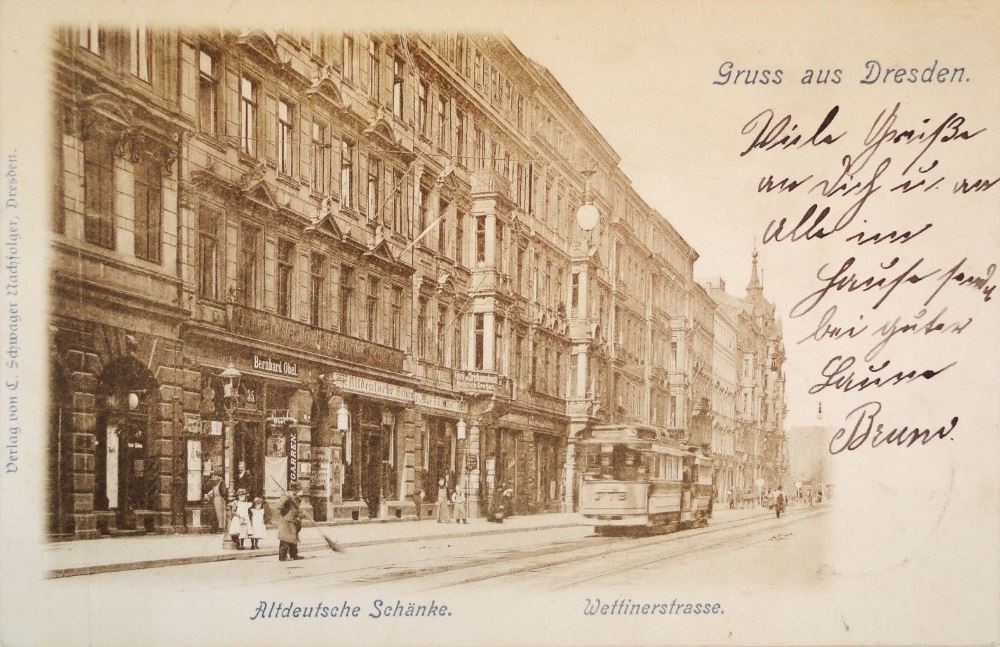 Gruss aus Dresden.
Viele Grüße
an Dich u. an
Alle im
Hause sendet
bei guter
Laune
Bruno.
Verlag von C. Schwager Nachfolger, Dresden.
Bernhard Obel
35
Altdeutsche
CIGARREN
Altdeutsche Schänke.
Wettinerstrasse.